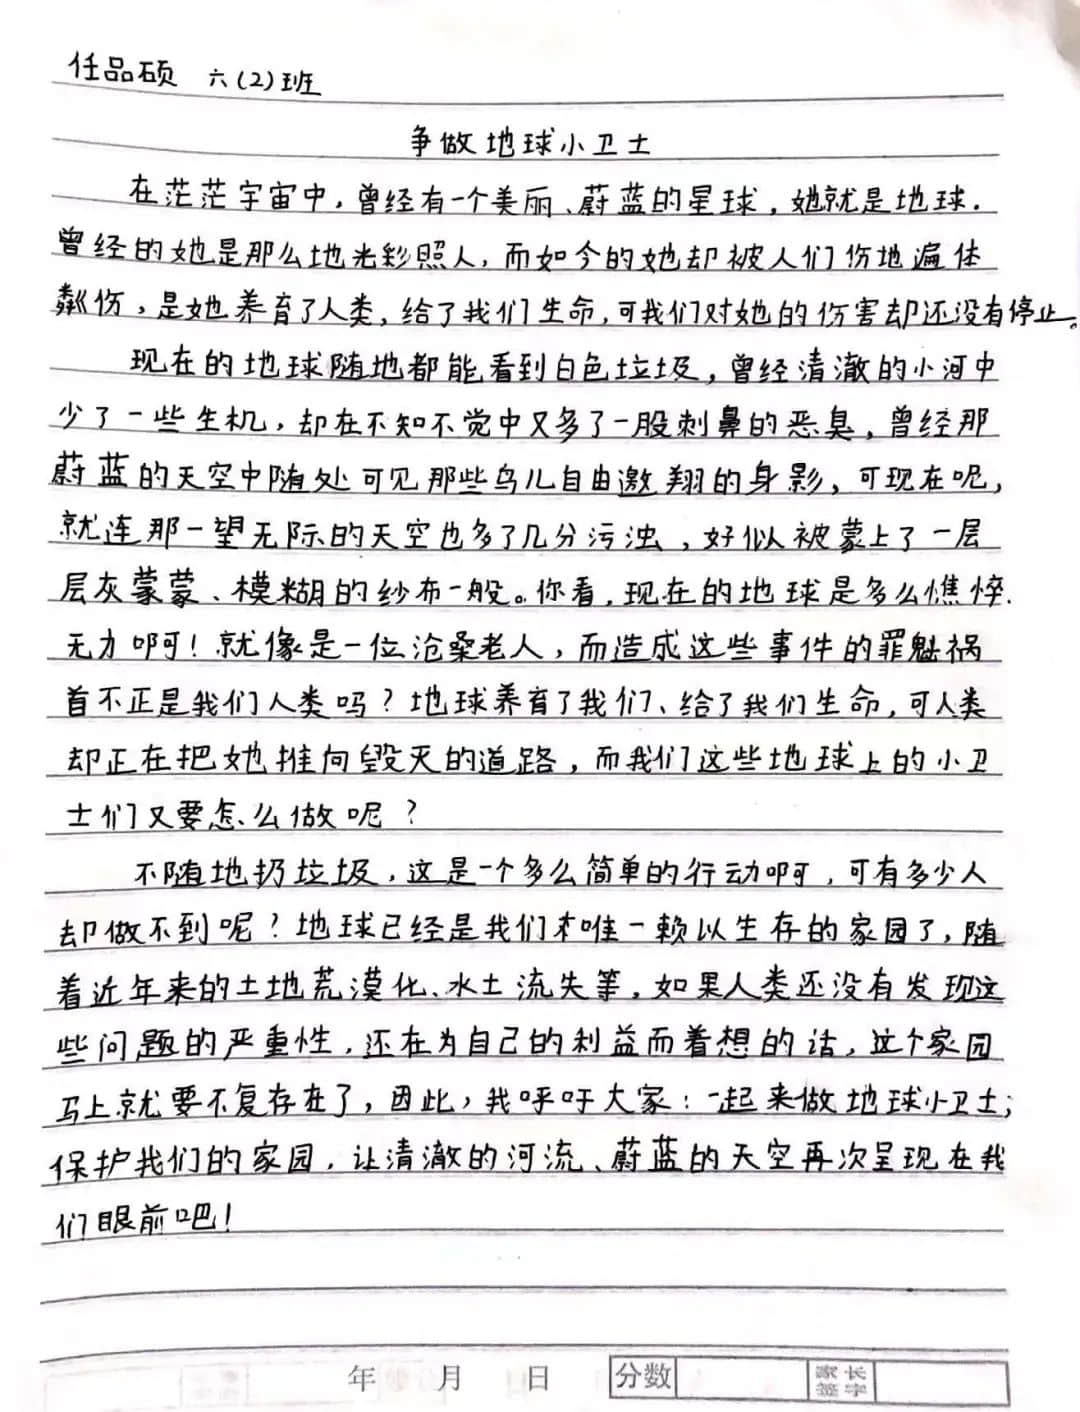 任品硕 六(2)班
争做地球小卫士
在茫茫宇宙中,曾经有一个美丽、蔚蓝的星球,她就是地球.
曾经的她是那么地光彩照人,而如今的她却被人们伤地遍体
粼伤,是她养育了人类,给了我们生命,可我们对她的伤害却还没有停止。
现在的地球随地都能看到白色垃圾,曾经清澈的小河中
少了一些生机,却在不知不觉中又多了一股刺鼻的恶臭,曾经那
蔚蓝的天空中随处可见那些鸟儿自由激翔的身影,可现在呢,
就连那一望无际的天空也多了几分污浊,好似被蒙上了一层
层灰蒙蒙、模糊的纱布一般。你看,现在的地球是多么憔悴.
无力啊!就像是一位沧桑老人,而造成这些事件的罪魁祸
首不正是我们人类吗?地球养育了我们、给了我们生命,可人类
却正在把她推向毁灭的道路,而我们这些地球上的小卫
士们又要怎么做呢?
不随地扔垃圾,这是一个多么简单的行动啊,可有多少人
却做不到呢?地球已经是我们唯一赖以生存的家园了,随
着近年来的土地荒漠化、水土流失等,如果人类还没有发现这
些问题的严重性,还在为自己的利益而着想的话,这个家园
马上就要不复存在了,因此,我呼吁大家:一起来做地球小卫士;
保护我们的家园,让清澈的河流、蔚蓝的天空再次呈现在我
们眼前吧!
年 月 日 分数 家长签字